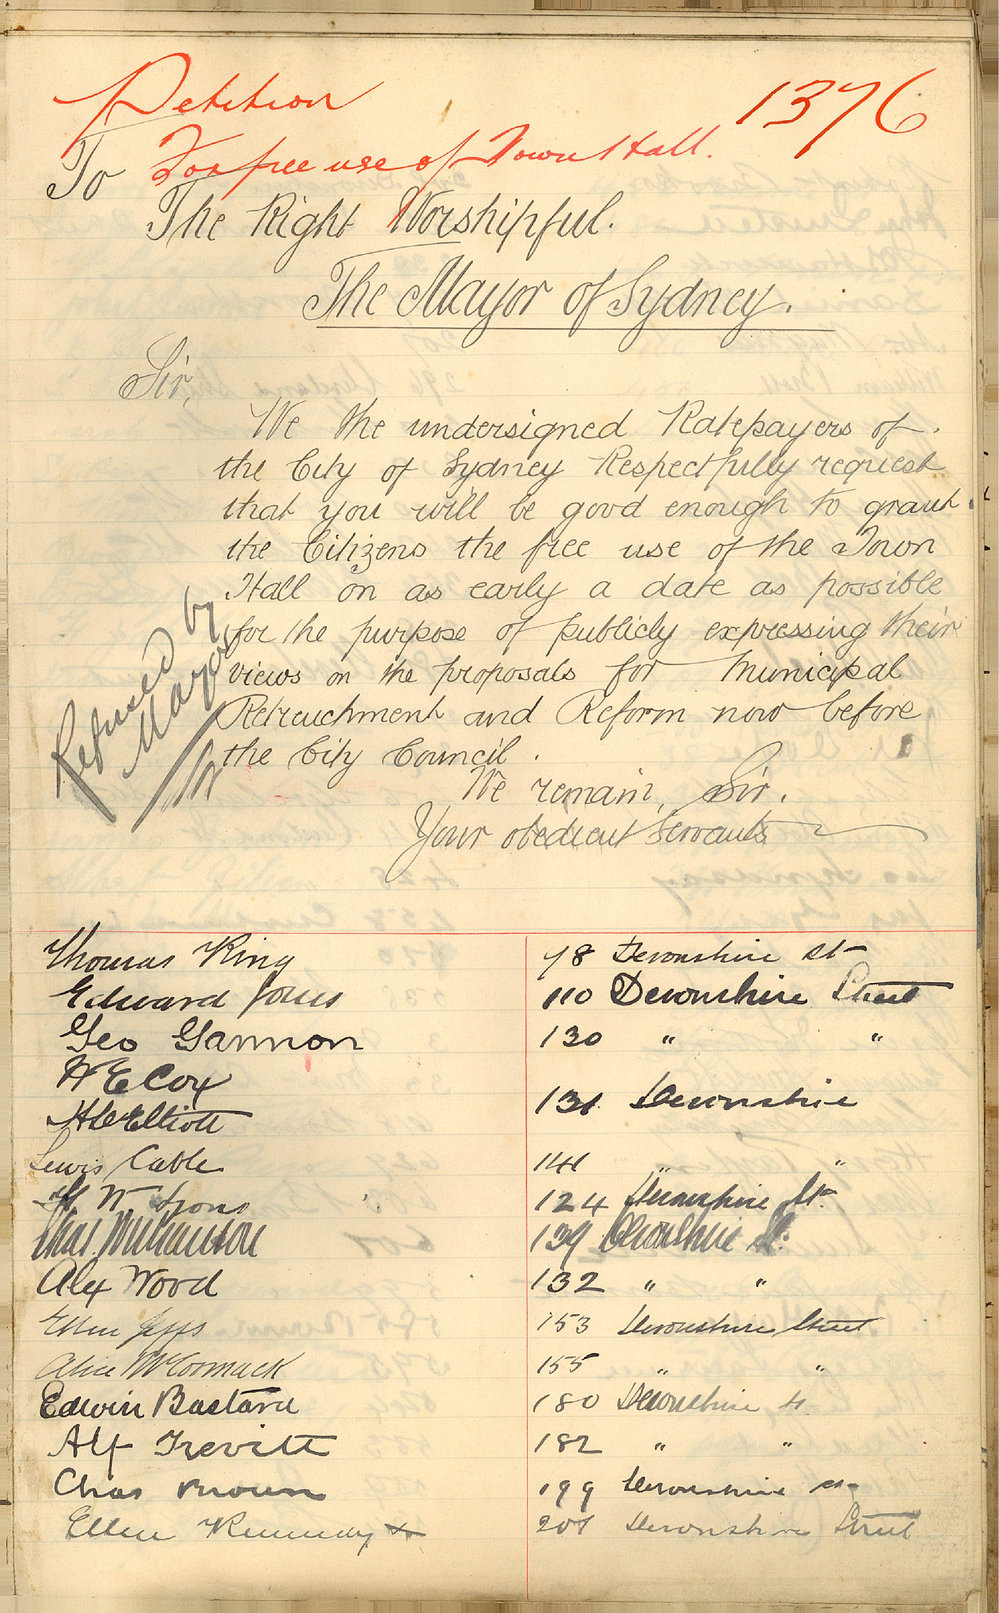 Petition
1376
For free use of Town Hall.
To
The Right Worshipful.
The Mayor of Sydney.
Sir,
We the undersigned Ratepayers of
the City of Sydney Respectfully request
that you will be good enough to grant
the Citizens the free use of the Town
Hall on as early a date as possible
for the purpose of publicly expressing their
views on the proposals for Municipal
Retrenchment and Reform now before
the City Council.
Refused by
Mayor
We remain, Sir.
Your obedient Servants
Thomas King 78 Devonshire St
Edward Jones 110 Devonshire Street
Geo Gannon 130 " "
W E Cox
H W Elliott 131 Devonshire
Lewis Cable 141 " "
H W Lyons 124 Devonshire St.
Chas. 139 Devonshire St.
Alex Wood 132 " "
Ellen Jeffs 153 Devonshire Street
Alice McCormack 155 " "
Edwin Bastard 180 Devonshire St.
Alf Trevitt 182 " "
Chas Brown 199 Devonshire St.
Ellen Kennedy 201 Devonshire Street